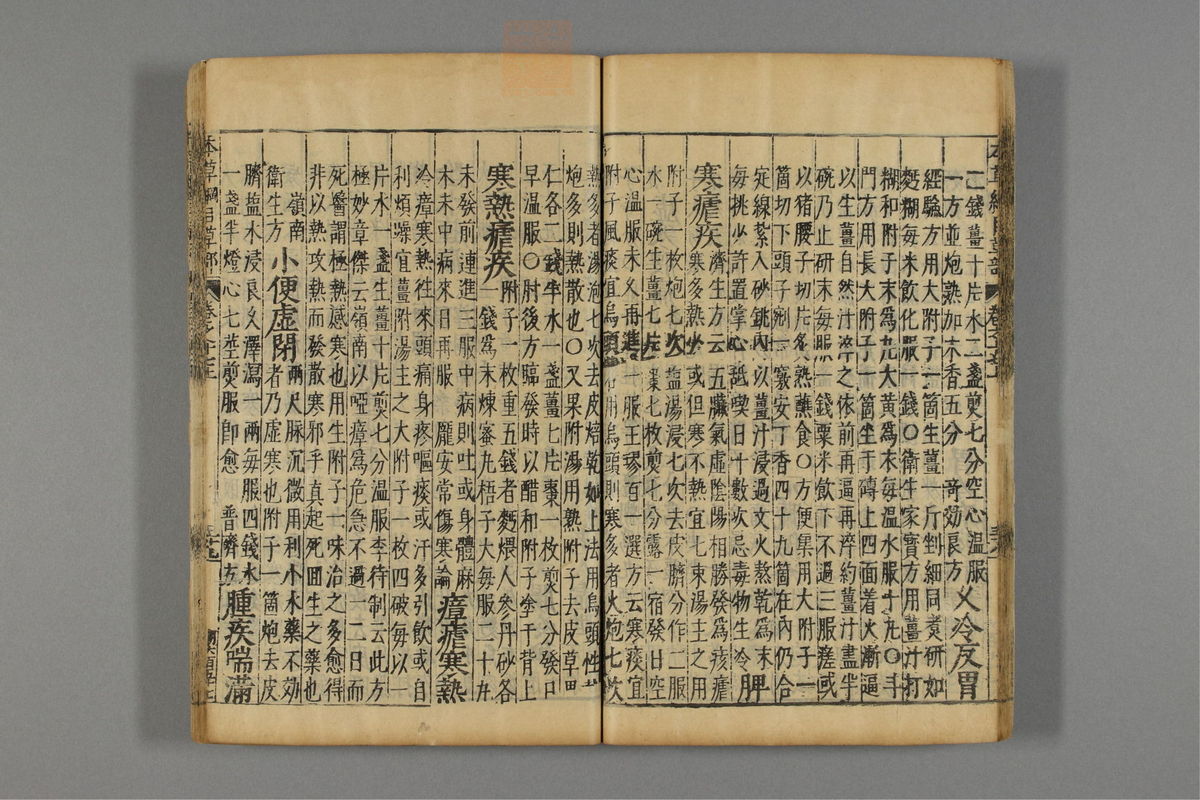 二錢薑十片水二盞煎七分空心温服
一方並炮熟加木香五分 竒効良方 久冷反胃
經驗方用大附子一箇生薑一斤剉細同煑研如
麪糊每米飲化服一錢〇衛生家寶方用薑汁打
糊和附子末爲丸大黄爲末每温水服十丸〇斗
門方用長大附子一箇坐于磚上四面着火漸逼
以生薑自然汁淬之依前再逼再淬約薑汁盡半
碗乃止研末每服一錢粟米飲下不過三服瘥或
以猪腰子切片炙熟蘸食〇方便集用大附子一
箇切下頭子剜一竅安丁香四十九箇在内仍合
定線紮入砂銚内以薑汁浸過文火熬乾爲末
每挑少許置掌心䑛喫日十數次忌毒物生冷 脾
寒瘧疾 濟生方云五臟氣虚陰陽相勝發爲痎瘧
寒多熱少或但寒不熱宜七棗湯主之用
附子一枚炮七次鹽湯浸七次去皮臍分作二服
水一碗生薑七片棗七枚煎七分露一宿發日空
心温服未久再進一服王璆百一選方云寒痰宜
附子風痰宜烏頭 用烏頭則寒多者火炮七次
熱多者湯泡七次去皮焙乾如上法用烏頭性
炮多則熱散也〇又果附湯用熟附子去皮草果
仁各二錢半水一盞薑七片棗一枚煎七分發日
早温服〇肘後方臨發時以醋和附子塗于背上
寒熱瘧疾 附子一枚重五錢者麪煨人參丹砂各
一錢爲末煉蜜丸梧子大每服二十丸
未發前連進三服中病則吐或身體麻
木未中病來日再服 龎安常傷寒論 瘴瘧寒熱
冷瘴寒熱徃來頭痛身疼嘔痰或汗多引飲或自
利煩躁宜薑附湯主之大附子一枚四破每以一
片水一盞生薑十片煎七分温服李待制云此方
極妙章傑云嶺南以啞瘴爲危急不過一二日而
死醫謂極熱感寒也用生附子一味治之多愈得
非以熱攻熱而發散寒邪乎真起死囬生之藥也
嶺南
衛生方 小便虚閉 兩尺脉沉微用利小水藥不効
者乃虚寒也附子一箇炮去皮
臍鹽水浸良久澤瀉一兩每服四錢水
一盞半燈心七莖煎服卽愈 普濟方 腫疾喘滿